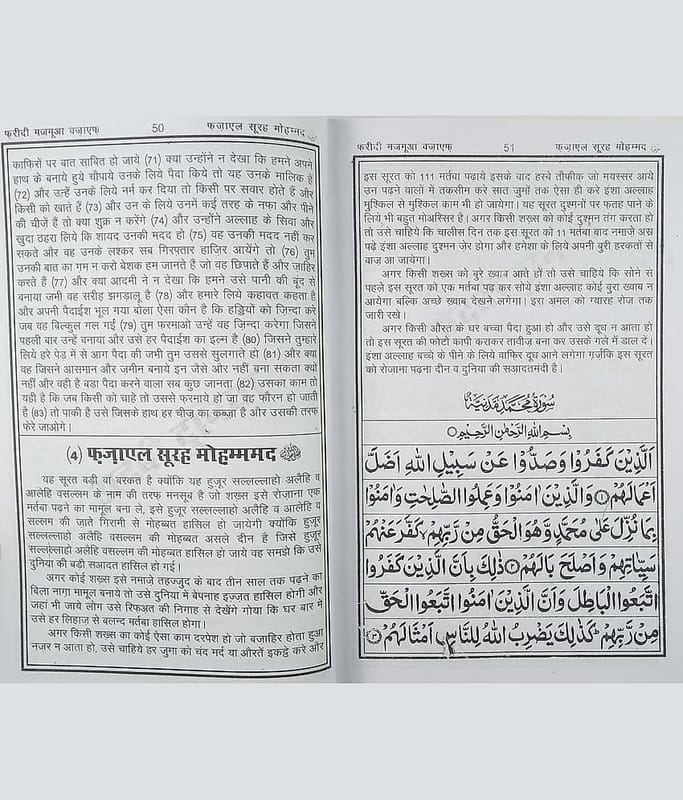 फरीदी मजमूआ वज़ाएफ 50 फज़ाएल सूरह मोहम्मद
काफिरों पर बात साबित हो जाये (71) क्या उन्होंने न देखा कि हमने अपने
हाथ के बनाये हुये चौपाये उनके लिये पैदा किये तो यह उनके मालिक हैं
(72) और उन्हें उनके लिये नर्म कर दिया तो किसी पर सवार होते हैं और
किसी को खाते हैं (73) और उन के लिये उनमें कई तरह के नफा और पीने
की चीज़ें हैं तो क्या शुक्र न करेंगे (74) और उन्होंने अल्लाह के सिवा और
खुदा ठहरा लिये कि शायद उनकी मदद हो (75) वह उनकी मदद नहीं कर
सकते और वह उनके लश्कर सब गिरफ़्तार हाज़िर आयेंगे तो (76) तुम
उनकी बात का गम न करो बेशक हम जानते हैं जो वह छिपाते हैं और जाहिर
करते हैं (77) और क्या आदमी ने न देखा कि हमने उसे पानी की बूंद से
बनाया जभी वह सरीह झगड़ालू है (78) और हमारे लिये कहावत कहता है
और अपनी पैदाईश भूल गया बोला ऐसा कौन है कि हड्डियों को ज़िन्दा करे
जब वह बिल्कुल गल गईं (79) तुम फरमाओ उन्हें वह ज़िन्दा करेगा जिसने
पहली बार उन्हें बनाया और उसे हर पैदाईश का इल्म है (80) जिसने तुम्हारे
लिये हरे पेड़ में से आग पैदा की जभी तुम उससे सुलगाते हो (81) और क्या
वह जिसने आसमान और ज़मीन बनाये इन जैसे और नहीं बना सकता क्यों
नहीं और वही है बड़ा पैदा करने वाला सब कुछ जानता (82) उसका काम तो
यही है कि जब किसी को चाहे तो उससे फ़रमाये हो जा वह फौरन हो जाती
है (83) तो पाकी है उसे जिसके हाथ हर चीज़ का कब्ज़ा है और उसकी तरफ
फेरे जाओगे।
(4) फज़ाएल सूरह मोहम्ममद ﷺ
यह सूरत बड़ी बा बरकत है क्योंकि यह हुज़ूर सल्लल्लाहो अलैहि व
आलेहि वसल्लम के नाम की तरफ मनसूब है जो शख़्स इसे रोज़ाना एक
मर्तबा पढ़ने का मामूल बना ले, इसे हुज़ूर सल्लल्लाहो अलैहि व आलेहि व
सल्लम की जाते गिरामी से मोहब्बत हासिल हो जायेगी क्योंकि हुज़ूर
सल्लल्लाहो अलैहि वसल्लम की मोहब्बत असले दीन है जिसे हुज़ूर
सल्लल्लाहो अलेहि वसल्लम की मोहब्बत हासिल हो जाये वह समझे कि उसे
दुनिया की बड़ी सआदत हासिल हो गई।
अगर कोई शख्स इसे नमाज़े तहज्जुद के बाद तीन साल तक पढ़ने का
बिला नाग़ा मामूल बनाये तो उसे दुनिया में बेपनाह इज़्ज़त हासिल होगी और
जहां भी जाये लोग उसे रिफअत की निगाह से देखेंगे गोया कि घर बार में
उसे हर लिहाज़ से बलन्द मर्तबा हासिल होगा।
अगर किसी शख्स का कोई ऐसा काम दरपेश हो जो बज़ाहिर होता हुआ
नज़र न आता हो, उसे चाहिये हर जुमा को चंद मर्द या औरतें इकट्ठे करे और
फरीदी मजमूआ वज़ाएफ 51 फज़ाएल सूरह मोहम्मद
इस सूरत को 111 मर्तबा पढ़ाये इसके बाद हस्बे तौफीक़ जो मयस्सर आये
उन पढ़ने वालों में तकसीम करे सात जुमों तक ऐसा ही करे इंशा अल्लाह
मुश्किल से मुश्किल काम भी हो जायेगा। यह सूरत दुश्मनों पर फ़तह पाने के
लिये भी बहुत मोअस्सिर है। अगर किसी शख़्स को कोई दुश्मन तंग करता हो
तो उसे चाहिये कि चालीस दिन तक इस सूरत को 11 मर्तबा बाद नमाज़े अस्र
पढ़े इंशा अल्लाह दुश्मन जेर होगा और हमेशा के लिये अपनी बुरी हरकतों से
बाज आ जायेगा।
अगर किसी शख़्स को बुरे ख़्वाब आते हों तो उसे चाहिये कि सोने से
पहले इस सूरत को एक मर्तबा पढ़ कर सोये इंशा अल्लाह कोई बुरा ख्वाब न
आयेगा बल्कि अच्छे ख़्वाब देखने लगेगा। इस अमल को ग्यारह रोज़ तक
जारी रखे।
अगर किसी औरत के घर बच्चा पैदा हुआ हो और उसे दूध न आता हो
तो इस सूरत की फोटो कापी कराकर तावीज़ बना कर उसके गले में डाल दे।
इंशा अल्लाह बच्चे के पीने के लिये वाफिर दूध आने लगेगा ग़र्ज़कि इस सूरत
को रोज़ाना पढ़ना दीन व दुनिया की सआदतमंदी है।
سُوْرَةُ مُحَمَّدٍ مَّدَنِيَّةٌ
بِسْمِ اللّٰهِ الرَّحْمٰنِ الرَّحِيْمِ
اَلَّذِيْنَ كَفَرُوْا وَصَدُّوْا عَنْ سَبِيْلِ اللّٰهِ اَضَلَّ
اَعْمَالَهُمْ ﴿۱﴾ وَالَّذِيْنَ اٰمَنُوْا وَعَمِلُوا الصّٰلِحٰتِ وَاٰمَنُوْا
بِمَا نُزِّلَ عَلٰى مُحَمَّدٍ وَّهُوَ الْحَقُّ مِنْ رَّبِّهِمْ ۙ كَفَّرَ عَنْهُمْ
سَيِّاٰتِهِمْ وَاَصْلَحَ بَالَهُمْ ﴿۲﴾ ذٰلِكَ بِاَنَّ الَّذِيْنَ كَفَرُوا
اتَّبَعُوا الْبَاطِلَ وَاَنَّ الَّذِيْنَ اٰمَنُوا اتَّبَعُوا الْحَقَّ
مِنْ رَّبِّهِمْ ؕ كَذٰلِكَ يَضْرِبُ اللّٰهُ لِلنَّاسِ اَمْثَالَهُمْ ﴿۳﴾